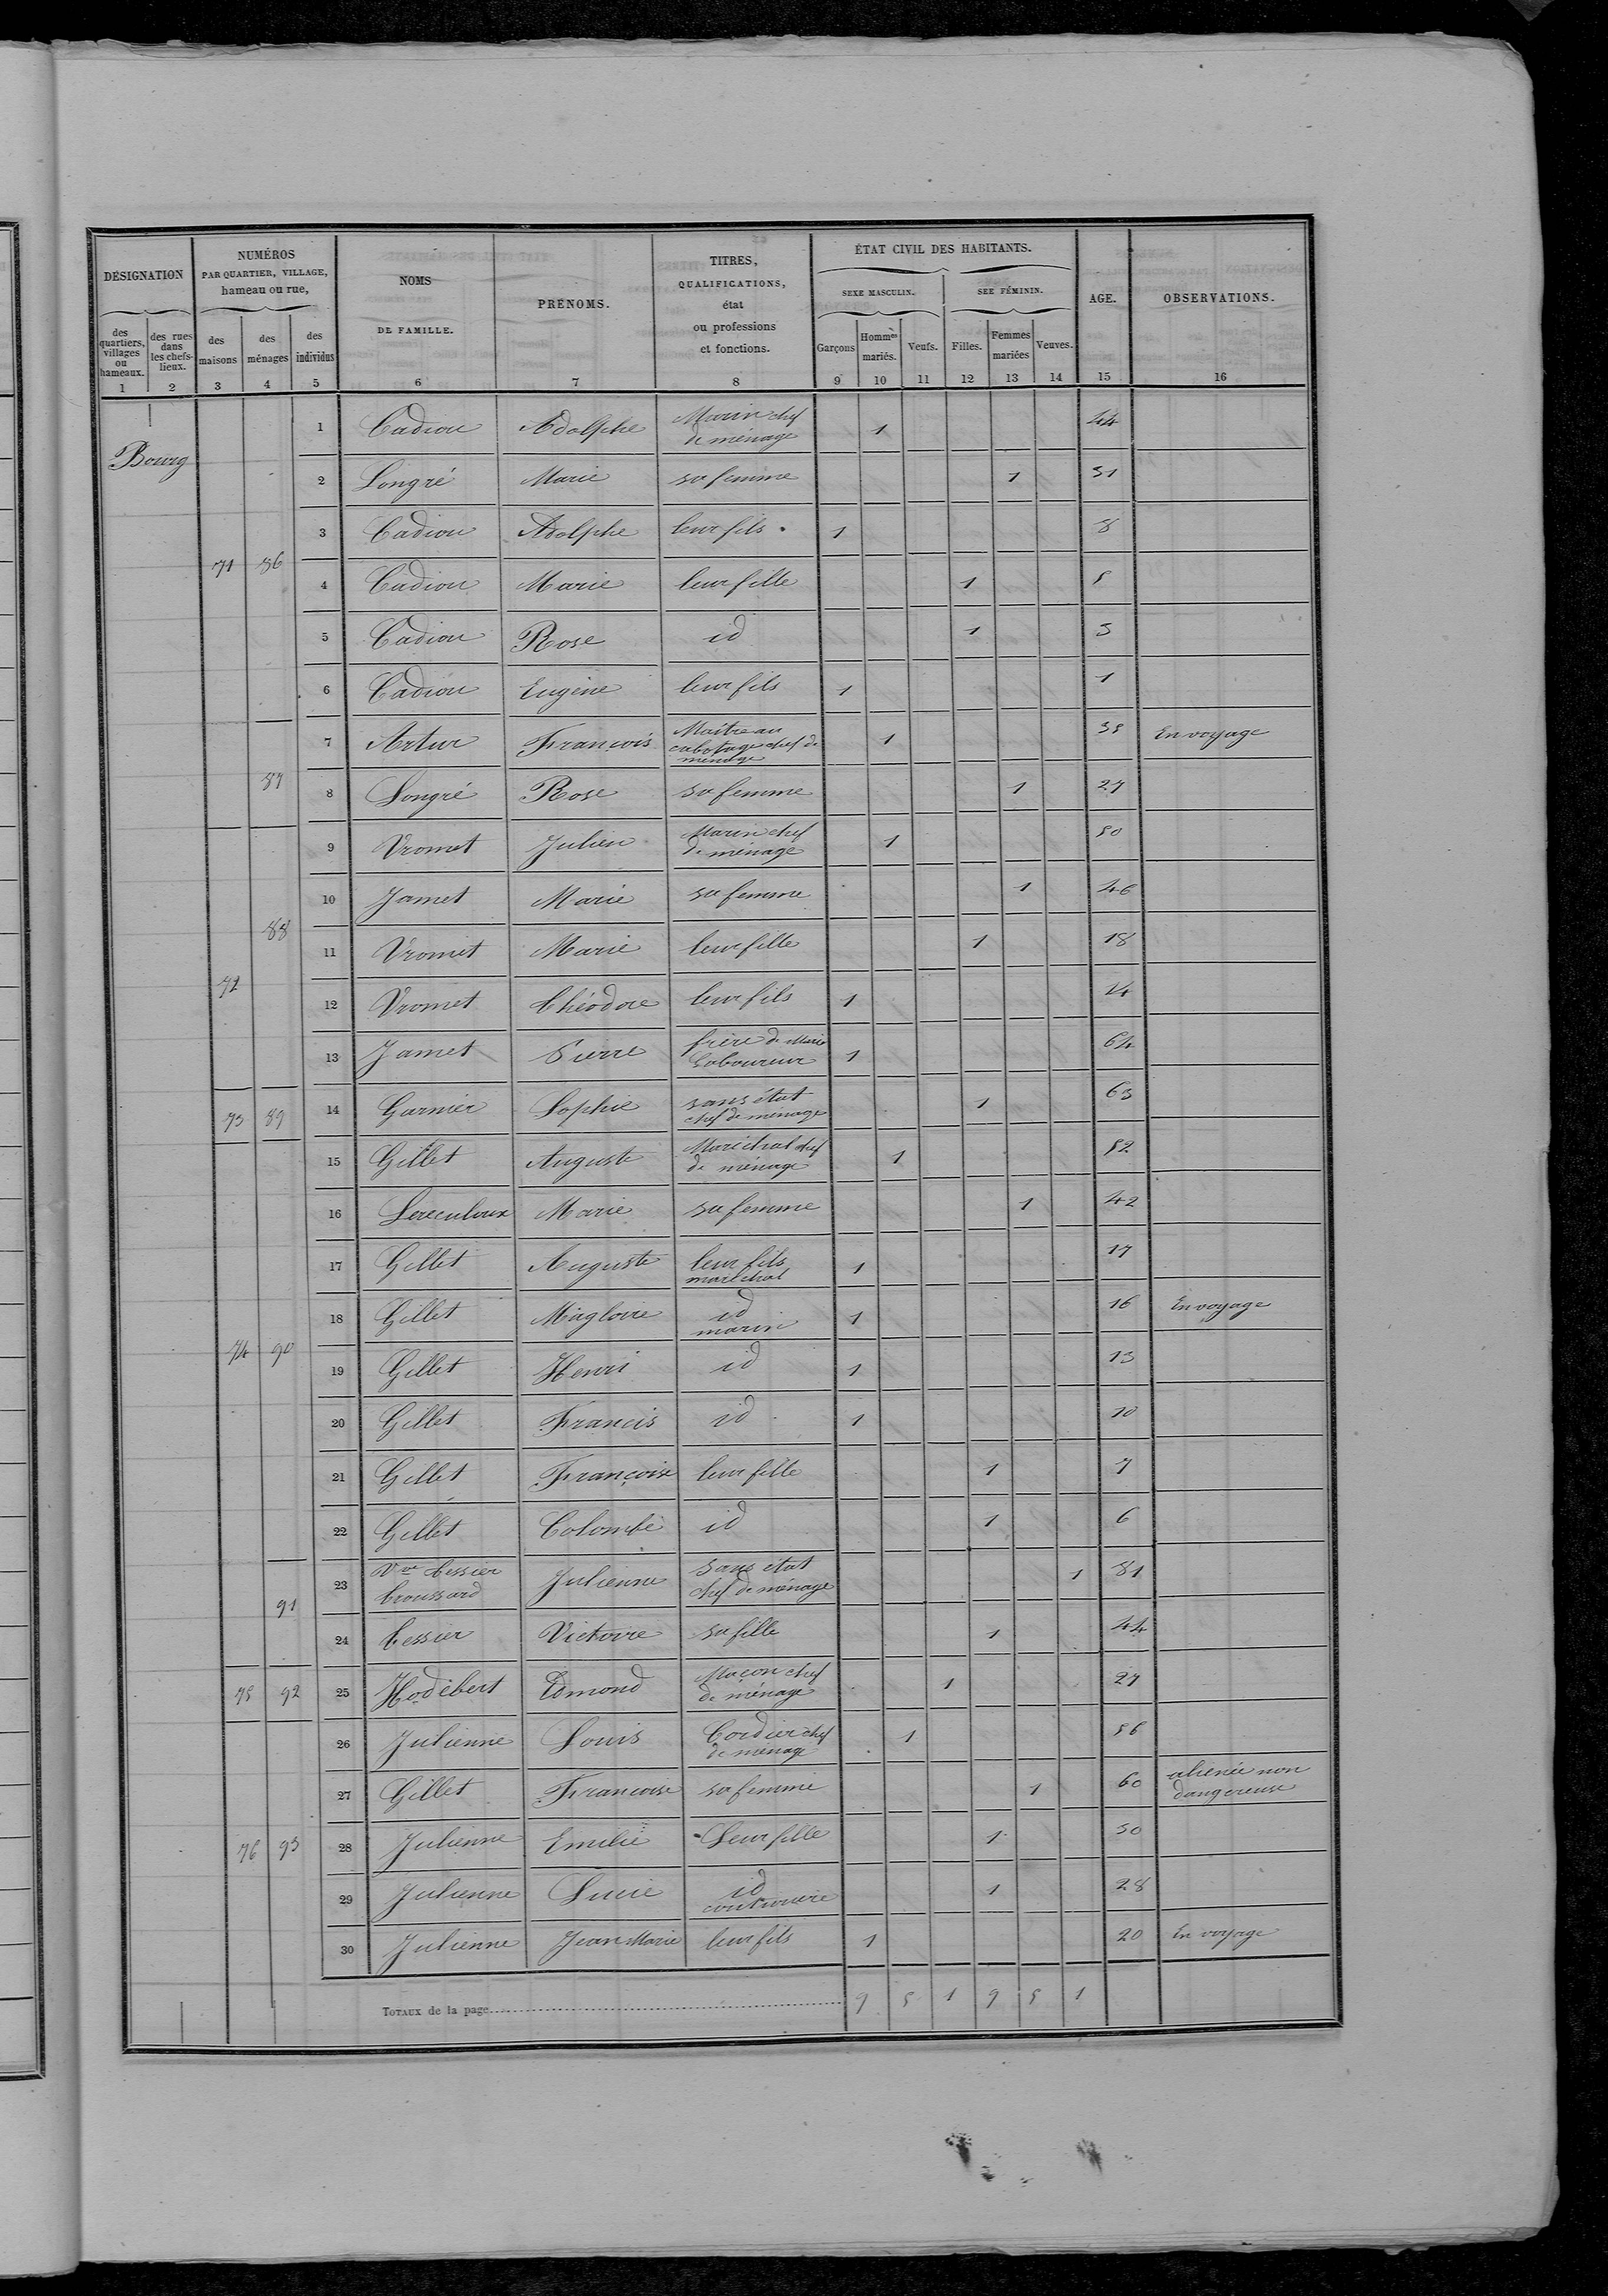 DÉSIGNATION
des quartiers, villages ou hameaux. 1
des rues dans les chefs-lieux. 2
NUMÉROS PAR QUARTIER, VILLAGE, hameau ou rue,
des maisons 3
des ménages 4
des individus 5
NOMS DE FAMILLE. 6
PRÉNOMS. 7
TITRES, QUALIFICATIONS, état ou professions et fonctions. 8
ÉTAT CIVIL DES HABITANTS.
SEXE MASCULIN.
Garçons 9
Hommes mariés. 10
Veufs. 11
SEE FÉMININ.
Filles. 12
Femmes mariées 13
Veuves. 14
AGE. 15
OBSERVATIONS. 16
Bourg
1 Cadiou Adolphe Marin chef de ménage 1 44
2 Longré Marie sa femme 1 31
3 Cadiou Adolphe leur fils 1 8
71 86
4 Cadiou Marie leur fille 1 5
5 Cadiou Rose id 1 3
6 Cadiou Eugène leur fils 1 1
7 Artur François Maître au cabotage chef de ménage 1 35 En voyage
87
8 Longré Rose sa femme 1 27
9 Vromet Julien Marin chef de ménage 1 50
10 Jamet Marie sa femme 1 46
88
11 Vromet Marie leur fille 1 18
72
12 Vromet Théodore leur fils 1 14
13 Jamet Pierre frère de Marie Laboureur 1 64
73 89 14 Garnier Sophie sans état chef de ménage 1 63
15 Gillet Auguste Maréchal chef de ménage 1 52
16 Lereculoux Marie sa femme 1 42
17 Gillet Auguste leur fils maréchal 1 17
18 Gillet Magloire id marin 1 16 En voyage
74 90
19 Gillet Henri id 1 13
20 Gillet Francis id 1 10
21 Gillet Françoise leur fille 1 7
22 Gillet Colombe id 1 6
23 Vve Tessier Troussard Julienne Sans état chef de ménage 1 81
91
24 Tessier Victoire sa fille 1 44
75 92 25 Hodébert Edmond Maçon chef de ménage 1 27
26 Julienne Louis Cordier chef de ménage 1 56
27 Gillet Francoise sa femme 1 60 alienée non dangereuse
76 93
28 Julienne Emilie Leur fille 1 30
29 Julienne Lucie id couturière 1 28
30 Julienne Jean Marie leur fils 1 20 En voyage
TOTAUX de la page 9 5 1 9 5 1